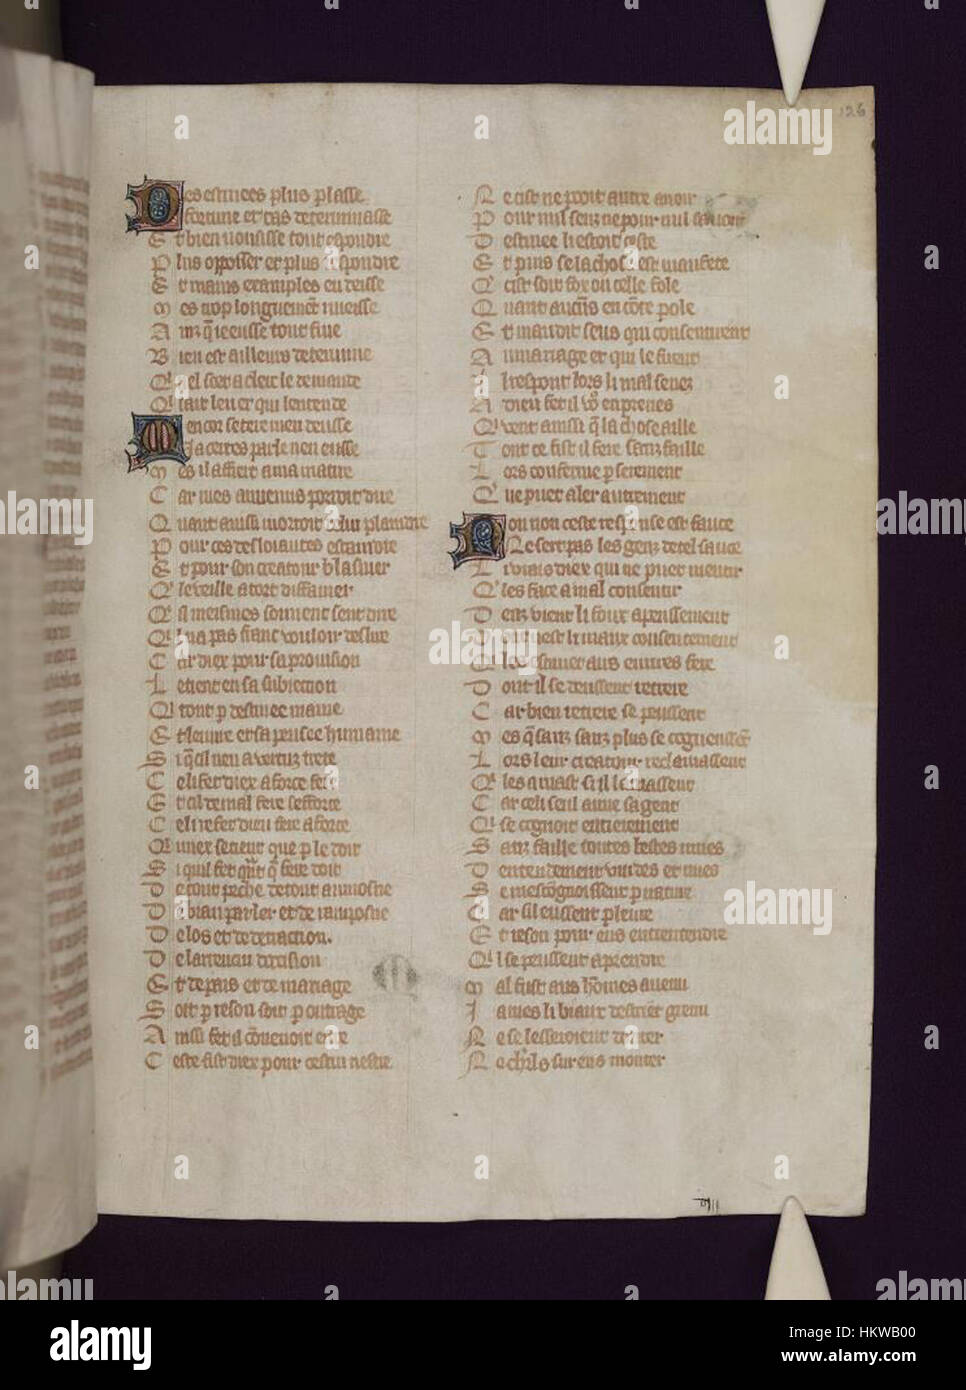 126
Des estinees plus plasse
fortune et cas determinasse
Et bien vousisse tout espondre
Plus opposser et plus respondre
Et mains examples en deisse
Mes trop longuement meisse
Ainz q ieeusse tout fine
Bien est ailleurs determine
Qi nel set a clerc le demande
Qi lait leu et qui lentende
Nencor se tere men deusse
Ja certes parle nen eusse
Mes il affiert a ma matire
Car mes anemis porroit dire
Quant ainssi morroit de lui plaindre
Pour ces desloiautes estaindre
Et pour son creatour blasmer
Qi le veille a tort diffamer
Qi meismes souvent seut dire
Qil na pas franc vouloir deslire
Car diex pour sa provision
Le tient en sa subiection
Qi tout p destinee maine
Et leuvre et sa pensee humaine
Si q sil
Ce li fet diex a force fere
Et sil de mal fere sefforce
Ce li refet dieu fere a force
Qi
Si quil fet q q fere doit
De tout peche de tout aumosne
De biau parler et de ramposne
De los et de detraction.
De larrecin doccision
Et de pais et de mariage
Soit p reson soit p outrage
Ainssi fet il convenoit estre
Ceste fist diex pour cestui nestre
Ne cist ne pooit autre avoir
Pour nul senz ne pour nul avoir
Destinee li estoit ceste
Et puis se la chose est maufete
Q cist soit fox ou celle fole
Quant aucuns en contre parole
Et maudit seus qui consentirent
Au mariage et qui le firent
Il respont lors li mal senez
A dieu fet il vous en prenes
Qi veut ainssi q la chose aille
Tout ce fist il fere sanz faille
Lors conferme p serement
Qi ne puet aler autrement
Non non ceste response est fauce
Ne sert pas les genz de tel sauce
Li vrais diex qui ne puet mentir
Qi les face a mal consentir
Denz vient li foux apenssement
Dont nest li maux consentement
Qi les esmuet aus euvres fere
Dont il se deussent retrere
Car bien retrere se peussent
Mes q sanz sanz plus se cogneussent
Lors leur creatour reclamassent
Qi les amast si il lamassent
Car celi seul aime sagement
Qi se cognoit entierement
Sanz faille toutes bestes mues
Dentendement vuides et nues
Se mescognoissent p nature
Car sil eussent p leure
Et reson pour eus entrentendre
Qil se peussent aprendre
Mal fust aus homes avenu
James li biaux destrier grenu
Ne se lesseroient donter
Ne chrs sur eus monter
alamy
Image ID: HKWB00
www.alamy.com